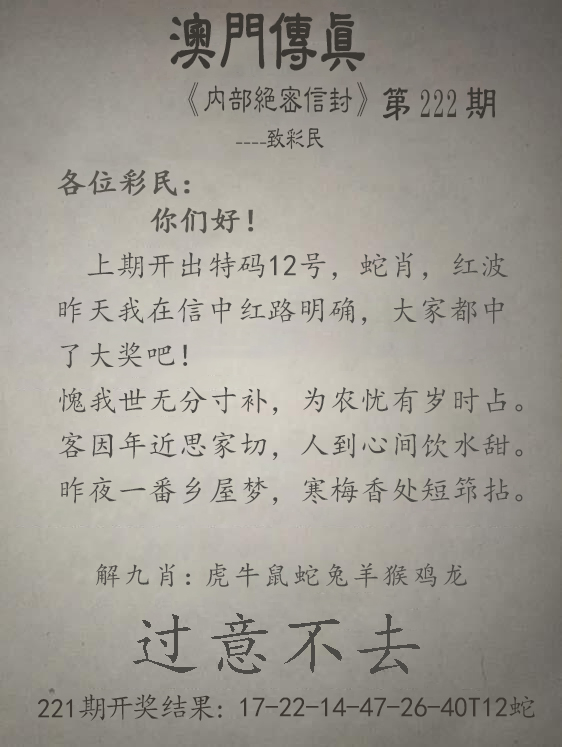 澳門傳眞
《内部絕密信封》第222期
----致彩民
各位彩民：
你们好！
上期开出特码12号，蛇肖，红波
昨天我在信中红路明确，大家都中
了大奖吧！
愧我世无分寸补，为农忧有岁时占。
客因年近思家切，人到心间饮水甜。
昨夜一番乡屋梦，寒梅香处短筇拈。
解九肖：虎牛鼠蛇兔羊猴鸡龙
过意不去
221期开奖结果：17-22-14-47-26-40T12蛇